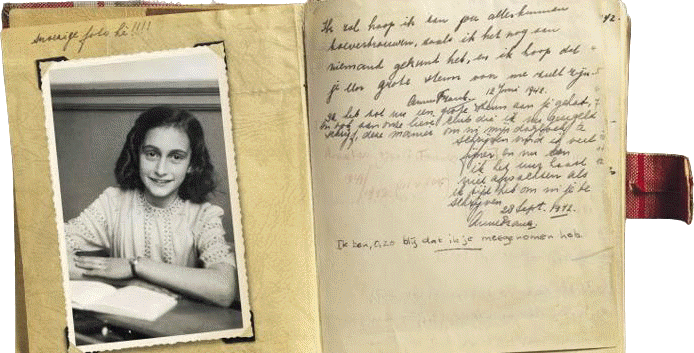 snoezige foto hè!!!!
42.
Ik zal hoop ik aan jou alles kunnen
toevertrouwen, zoals ik het nog aan
niemand gekund heb, en ik hoop dat
je een grote steun voor me zult zijn.
Anne Frank. 12 Juni 1942.
Ik heb tot nu een grote steun aan je gehad,
en ook aan onze lieve club die ik nu geregeld
schrijf, deze manier om in mijn dagboek te
schrijven vind ik veel
fijner en nu kan
ik het uur haast
niet afwachten als
ik tijd heb om in je te
schrijven
28 Sept. 1942.
Anne Frank.
Ik ben, o, zo blij dat ik je meegenomen heb.